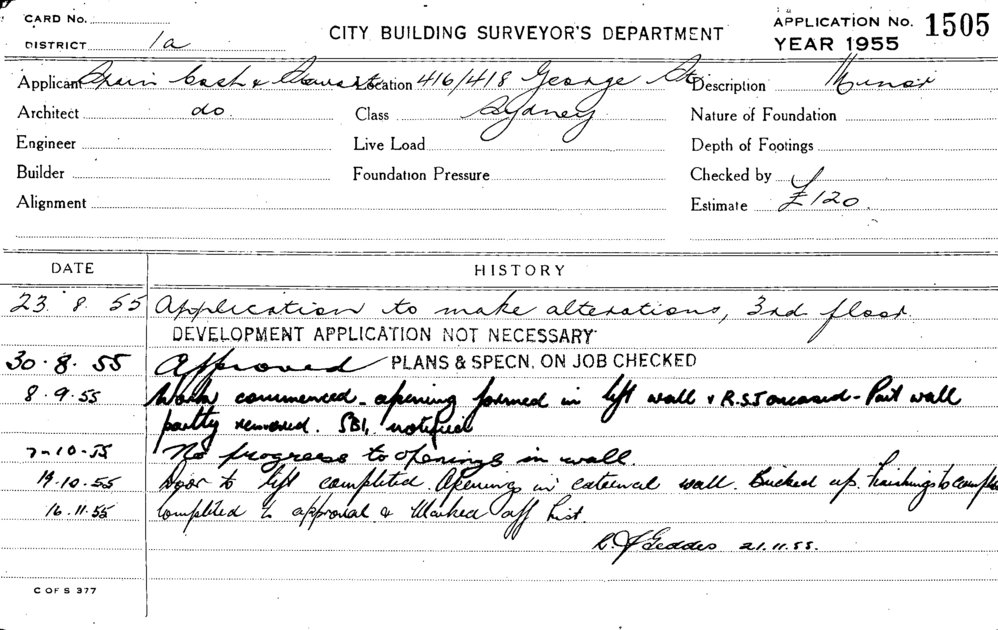 CARD No.
DISTRICT 1a
CITY BUILDING SURVEYOR'S DEPARTMENT
APPLICATION No. 1505
YEAR 1955
Applicant Spain Cosh & Stewart Location 416/418 George St Description Minor
Architect do. Class Sydney Nature of Foundation
Engineer Live Load Depth of Footings
Builder Foundation Pressure Checked by
Alignment Estimate £120.
DATE HISTORY
23. 8. 55 Application to make alterations, 3rd floor.
DEVELOPMENT APPLICATION NOT NECESSARY
30.8.55 Approved PLANS & SPECN. ON JOB CHECKED
8.9.55 Work commenced - opening formed in lift wall & R.S.J encased - Part wall
partly removed. SBI, notified
7-10-55 No progress to openings in wall.
19.10.55 Door to lift completed. Openings in external wall. Bricked up. Finishings to
16.11.55 Completed to approval & Marked off List.
R.J Geddes 21.11.55.
C OF S 377